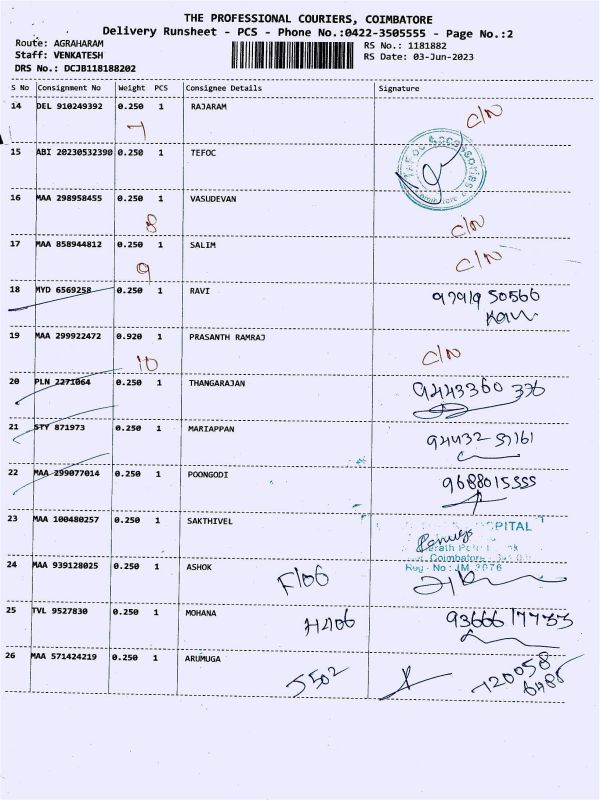 THE PROFESSIONAL COURIERS, COIMBATORE
Delivery Runsheet - PCS - Phone No.:0422-3505555 - Page No.:2
Route: AGRAHARAM RS No.: 1181882
Staff: VENKATESH RS Date: 03-Jun-2023
DRS No.: DCJB118188202
S No Consignment No Weight PCS Consignee Details Signature
14 DEL 910249392 0.250 1 RAJARAM C/N
7
15 ABI 20230532390 0.250 1 TEFOC
TEFOC ACCESSORIES
16 MAA 298958455 0.250 1 VASUDEVAN
8 C/N
17 MAA 858944812 0.250 1 SALIM C/N
9
18 MYD 6569258 0.250 1 RAVI 97919 50566
19 MAA 299922472 0.920 1 PRASANTH RAMRAJ
10 C/N
20 PLN 2271064 0.250 1 THANGARAJAN 9443360 376
21 STY 871973 0.250 1 MARIAPPAN
22 MAA 299077014 0.250 1 POONGODI 9688015555
23 MAA 100480257 0.250 1 SAKTHIVEL
Coimbatore
24 MAA 939128025 0.250 1 ASHOK Reg - No : JM 3076
F106
25 TVL 9527830 0.250 1 MOHANA
H406
26 MAA 571424219 0.250 1 ARUMUGA
5502